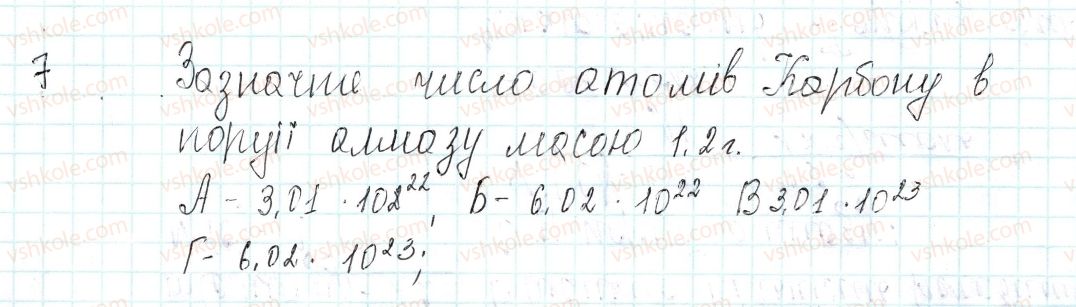 7 Зазначте число атомів Карбону в
порції алмазу масою 1,2г.
А - 3,01 · 102²², Б - 6,02 · 10²² В 3,01 · 10²³
Г - 6,02 · 10²³;